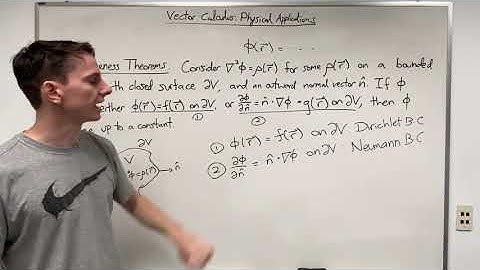 Vector Calculus: Physical Applications
ϕ(r⃗) = ....
eness Theorems. Consider ∇²ϕ=ρ(r⃗) for some ρ(r⃗) on a bounded
th closed surface ∂V, and an outward normal vector n̂. If ϕ
either ϕ(r⃗)=f(r⃗) on ∂V, or ∂ϕ/∂n̂ = n̂·∇ϕ = g(r⃗) on ∂V, then ϕ
① ②
up to a constant.
∂V
V
=ρ(r⃗)
n̂
① ϕ(r⃗) = f(r⃗) on ∂V Dirichlet BC
② ∂ϕ/∂n̂ = n̂·∇ϕ on ∂V Neumann BC